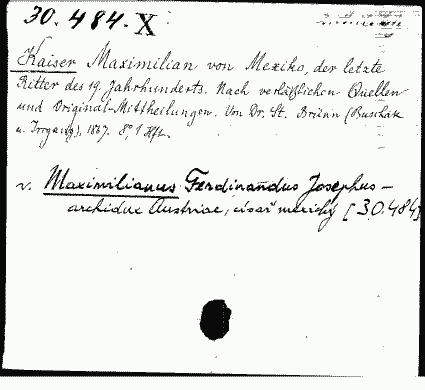 30.484. X
Kaiser Maximilian von Mexiko, der letzte
Ritter des 19. Jahrhunderts. Nach verläßlichen Quellen
und Original-Mittheilungen. Von Dr. St. Brünn (Buschak
u. Irrgang), 1867. 8° 1 Hft.
v. Maximilianus Ferdinandus Josephus –
archidux Austriae, císař mexický [30.484]